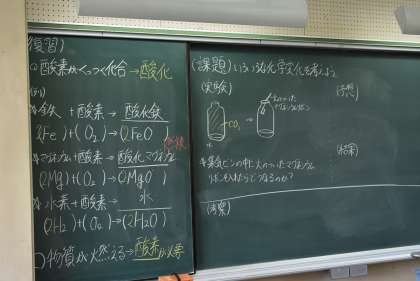 復習)
○酸素がくっつく化合→酸化
例)
鉄 + 酸素 → 酸化鉄
(2Fe)+(O₂)→(2FeO)
マグネシウム+酸素→酸化マグネシウム
(2Mg)+(O₂)→(2MgO)
水素+酸素→水
(2H₂)+(O₂)→(2H₂O)
○物質が燃える→酸素が必要
(課題)いろいろな化学変化を考えよう。
(実験)
(予想)
火のついた
マグネシウムリボン
CO₂
→
集気ビンの中に火のついたマグネシウム
リボンを入れたらどうなるのか?
(結果)
(考察)